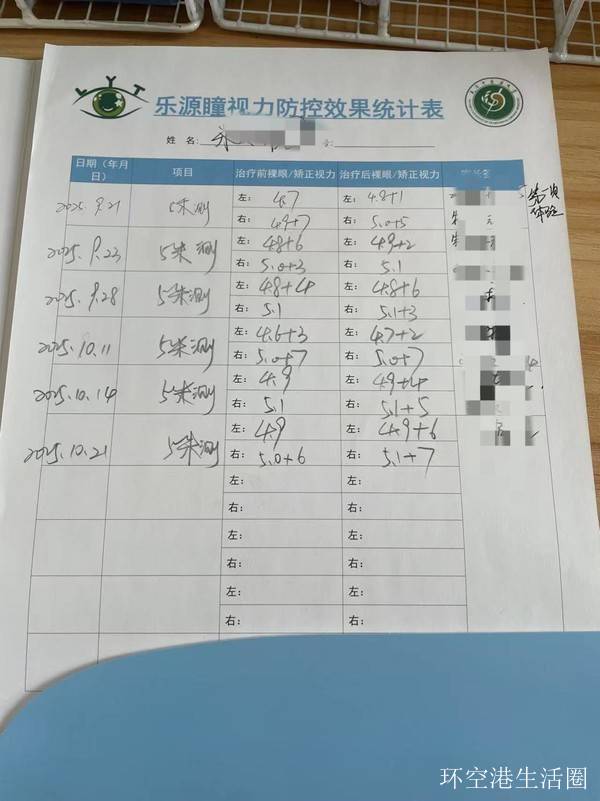 LYT
乐源瞳视力防控效果统计表
姓 名:
日期(年月日) 项目 治疗前裸眼/矫正视力 治疗后裸眼/矫正视力
2025.9.21 5米测 左: 4.7 左: 4.8+1 第一次体验
右: 4.9+7 右: 5.0+5
2025.9.23 5米测 左: 4.8+6 左: 4.9+2
右: 5.0+3 右: 5.1
2025.9.28 5米测 左: 4.8+4 左: 4.8+6
右: 5.1 右: 5.1+3
2025.10.11 5米测 左: 4.6+3 左: 4.7+2
右: 5.0+7 右: 5.0+7
2025.10.14 5米测 左: 4.9 左: 4.9+4
右: 5.1 右: 5.1+5
2025.10.21 5米测 左: 4.9 左: 4.9+6
右: 5.0+6 右: 5.1+7
左: 左:
右: 右:
左: 左:
右: 右:
左: 左:
右: 右:
环空港生活圈